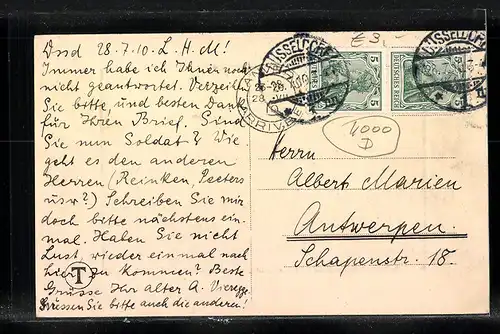 Dssd 28.7.10. L. H. M!
Immer habe ich Ihnen noch
nicht geantwortet. Verzeih.
Sie bitte, und besten Dank
für Ihren Brief. Sind
Sie nun Soldat? Wie
geht es den anderen
Herren (Reinken, Peeters
usw?) Schreiben Sie mir
doch bitte nächstens ein-
mal. Haben Sie nicht
Lust, wieder einmal nach
hier zu kommen? Beste
Grüsse Ihr alter A.
Grüssen Sie bitte auch die anderen!
T
DÜSSELDORF
DÜSSELDORF
5 DEUTSCHES REICH 5
5 DEUTSCHES REICH 5
€ 3,-
4000
D
Herrn
Albert Marien
Antwerpen.
Schapenstr. 18.